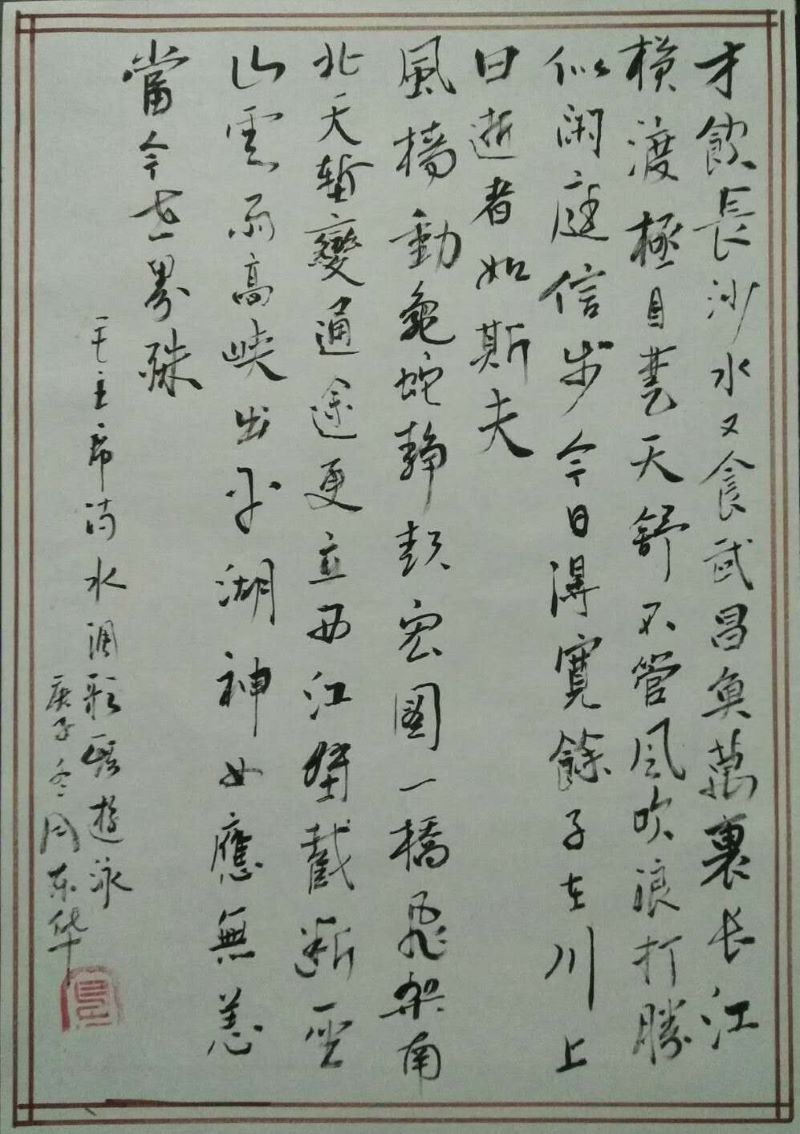 才飲長沙水又食武昌魚萬裏长江
横渡極目楚天舒不管风吹浪打勝
似闲庭信步今日得寬餘子在川上
曰逝者如斯夫
風檣動龜蛇静起宏图一橋飛架南
北天塹變通途更立西江壁截断巫
山雲雨高峡出平湖神女應無恙
當今世界殊
毛主席词水调歌头遊泳
庚子冬周东华